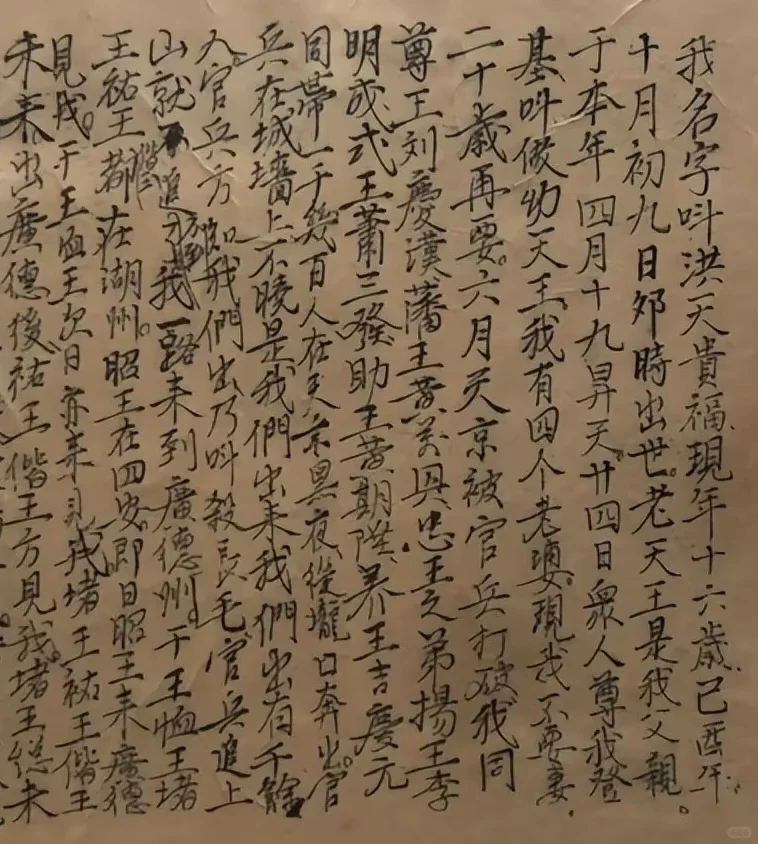 我名字叫洪天貴福。現年十六歲。己酉年
十月初九日卯時出世。老天王是我父親。
于本年四月十九昇天。廿四日眾人尊我登
基。叫做幼天王。我有四个老婆。現我不要妻。
二十歲再要。六月天京被官兵打破。我同
尊王刘慶漢藩王黄萬興忠王之弟揚王李
明成式王蕭三發助王黄期陞养王吉慶元
同帶一千幾百人在天京黑夜從壠口奔出。官
兵在城墻上不曉是我們出來。我們出有千餘
人。官兵方知我們出乃叫殺長毛官兵追上
山就不追我一路來到廣德州。干王恤王堵
王祐王都在湖州。昭王在四安。即日昭王来廣德
見我。干王恤王次日亦来見我。堵王祐王偕王
未来。出廣德後祐王偕王方見我。堵王総未